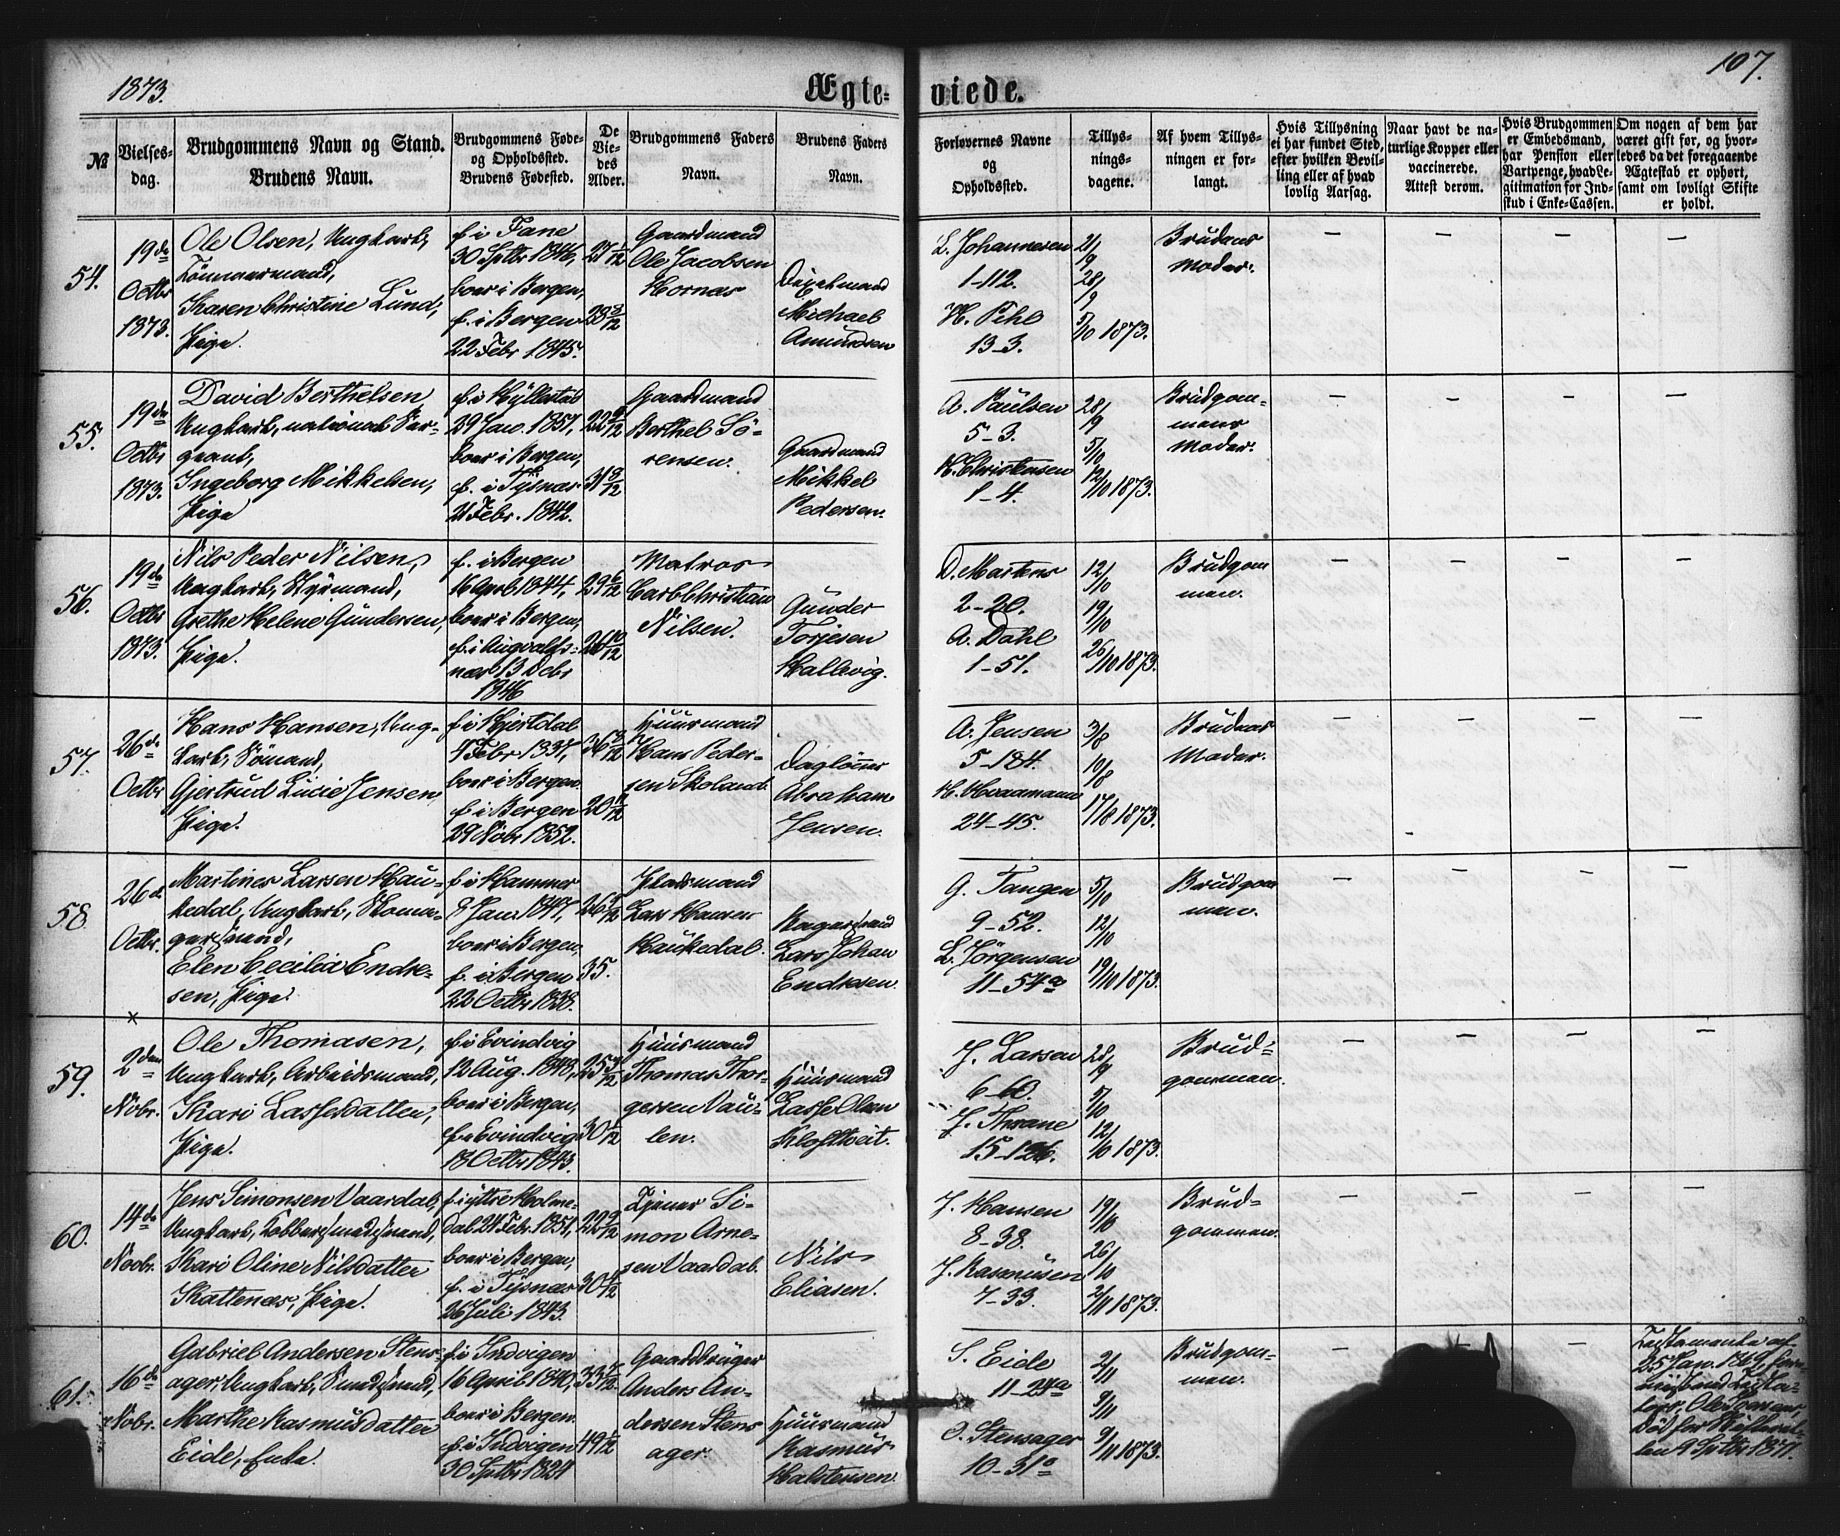 1873.
Ægte-
viede.
107.
№
Vielses-
dag.
Brudgommens Navn og Stand.
Brudens Navn.
Brudgommens Føde-
og Opholdssted.
Brudens Fødested.
De
Vie-
des
Alder.
Brudgommens Faders
Navn.
Brudens Faders
Navn.
Forlovernes Navne
og
Opholdssted.
Tillys-
nings-
dagene.
Af hvem Tillys-
ningen er for-
langt.
Hvis Tillysning
ei har fundet Sted,
efter hvilken Bevil-
ling eller af hvad
lovlig Aarsag.
Naar havt de na-
turlige Kopper eller
vaccinerede.
Attest derom.
Hvis Brudgommen
er Embedsmand,
har Pension eller
Vartpenge, hvad Le-
gitimation for Ind-
skud i Enke-Cassen.
Om nogen af dem har
været gift for, og hvor-
ledes da det foregaaende
Ægteskab er ophørt,
samt om lovligt Skifte
er holdt.
54.
19de
Octbr
1873.
Ole Olsen, Ungkarl,
Tømmermand,
Karen Christine Lund,
Pige.
f. i Fane
30 Septbr 1846,
boer i Bergen,
f. i Bergen
22 Febr 1845.
27 1/12
28 8/12
Gaardmand
Ole Jacobsen
Hornæs
Michael
Amundsen
L. Johannesen
1-112.
H. Pihl
13-3.
21/9
28/9
5/10 1873.
Brudens
Moder.
55.
19de
Octbr
1873.
David Berthelsen
Ungkarl, national Ser-
geant,
Ingeborg Mikkelsen,
Pige
f. i Hyllestad
29 Jan. 1851,
boer i Bergen,
f. i Tysnæs
21 Febr. 1842.
22 9/12
31 8/12
Gaardmand
Berthel Sö-
rensen.
Gaardmand
Mikkel
Pedersen.
A. Paulsen
5-3.
K. Christensen
1-4.
28/9
5/10
12/10 1873.
Brudgom-
mens
Moder.
56.
19de
Octbr
1873.
Nils Peder Nilsen,
Ungkarl, Styrmand,
Grethe Helene Gundersen,
Pige.
f. i Bergen
16 April 1844,
boer i Bergen,
f. i Augvalds-
næs 13 Decbr
1846
29 6/12
26 10/12
Matros
Carl Christian
Nilsen.
Gunder
Torjesen
Hallevig.
D. Martens
2-20.
A. Dahl
1-51.
12/10
19/10
26/10 1873.
Brudgom
men.
57.
26de
Octbr
Hans Hansen, Ung-
karl, Sömand,
Gjertrud Lucie Jensen,
Pige.
f. i Hjertdal
4 Febr 1837,
boer i Bergen.
f. i Bergen
29 Novbr 1852.
36 8/12
20 11/12
Huusmand
Hans Peder-
sen Skoland.
Daglönner
Abraham
Jensen.
A. Jensen
5-184.
24-45.
3/8
10/8
17/8 1873.
Brudens
Moder.
58.
26de
Octbr.
Martines Larsen Hau-
kedal, Ungkarl, Skoma-
gersvend,
Elen Cecilia Endre-
sen, Pige.
f. i Hammer
8 Jan. 1847,
boer i Bergen,
f. i Bergen
22 Octbr 1838.
26 9/12
35.
Pladsmand
Lars Hansen
Haukedal.
Lars Johan
Endresen.
G. Tangen
9-52.
L. Jörgensen
11-54a
5/10
12/10
19/10 1873.
Brudgom
men.
59.
2den
Novbr.
Ole Thomasen,
Ungkarl, Arbeidsmand,
Kari Lassesdatter,
Pige.
f. i Evindvig
12 Aug. 1848,
boer i Bergen,
f. i Evindvig
18 Octbr 1843.
25 3/12
30 1/12
Huusmand
Thomas Thor-
gersen Vau-
len.
Huusmand
Lasse Olsen
Kloftveit.
J. Larsen
6-60.
J. Thrane
15-126.
28/9
5/10
12/10 1873.
Brud-
gommen.
60.
14de
Novbr.
Jens Simonsen Vaardal,
Ungkarl, Kobbersmedsvend,
Kari Oline Nilsdatter
Skattenæs, Pige.
f. i ytre Holme-
dal 24 Febr. 1851,
boer i Bergen,
f. i Tysnæs
26 Juli 1843.
22 9/12
30 4/12
Tjener Si-
mon Arne-
sen Vaardal.
Nils
Eliasen.
J. Hansen
8-38.
J. Rasmusen
7-33.
19/10
26/10
2/11 1873.
Brud-
gommen.
61.
16de
Novbr.
Gabriel Andersen Stens-
ager, Ungkarl, Smedsvend,
Marthe Rasmusdatter
Eide, Enke.
f. i Indvigen
16 April 1840,
boer i Bergen.
f. i Indvigen
30 Septbr 1824
33 7/12
49 1/12
Gaardbruger
Anders An-
dersen Stens
ager.
Huusmand
Rasmus
Halstensen.
S. Eide
11-24a
O. Stensager
10-31a
2/11
9/11
9/11 1873.
Brudgom-
men.
Testamente af
25 Jan. 1869